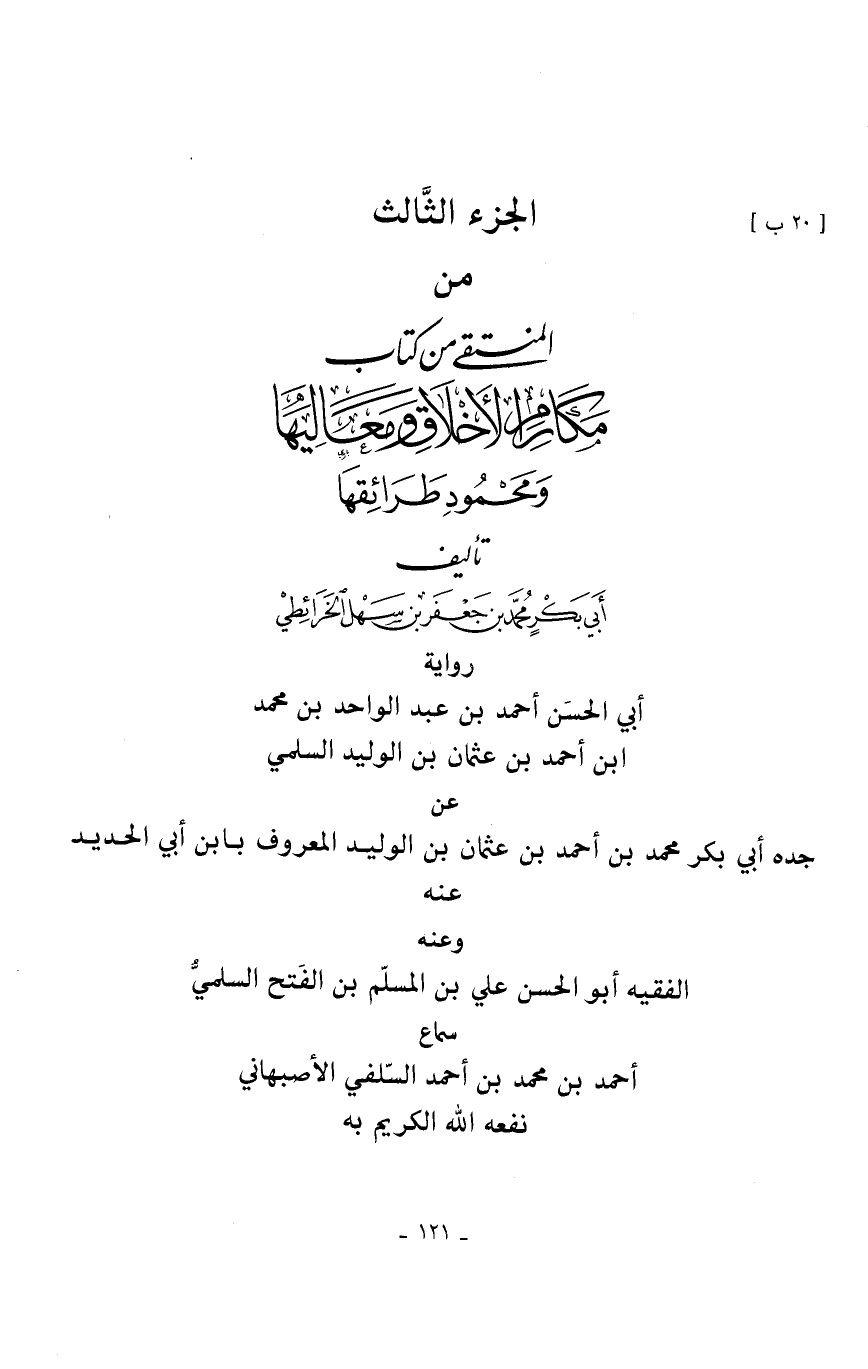 [ ٢٠ ب ]
الجزء الثَّالث
من
المنتقى من كتاب
مَكَارِمِ الأَخْلَاقِ وَمَعَالِيهَا
وَمَحْمُودِ طَرَائِقِهَا
تأليف
أَبِي بَكْرٍ مُحَمَّد بْن جَعْفَر بْن سَهْل الخَرَائِطِيْ
رواية
أبي الحسَن أحمد بن عبد الواحد بن محمد
ابن أحمد بن عثمان بن الوليد السلمي
عن
جده أبي بكر محمد بن أحمد بن عثمان بن الوليد المعروف بابن أبي الحديد
عنه
وعنه
الفقيه أبو الحسن علي بن المسلّم بن الفَتح السلميُّ
سماع
أحمد بن محمد بن أحمد السّلفي الأصبهاني
نفعه الله الكريم به
ـ ١٢١ ـ